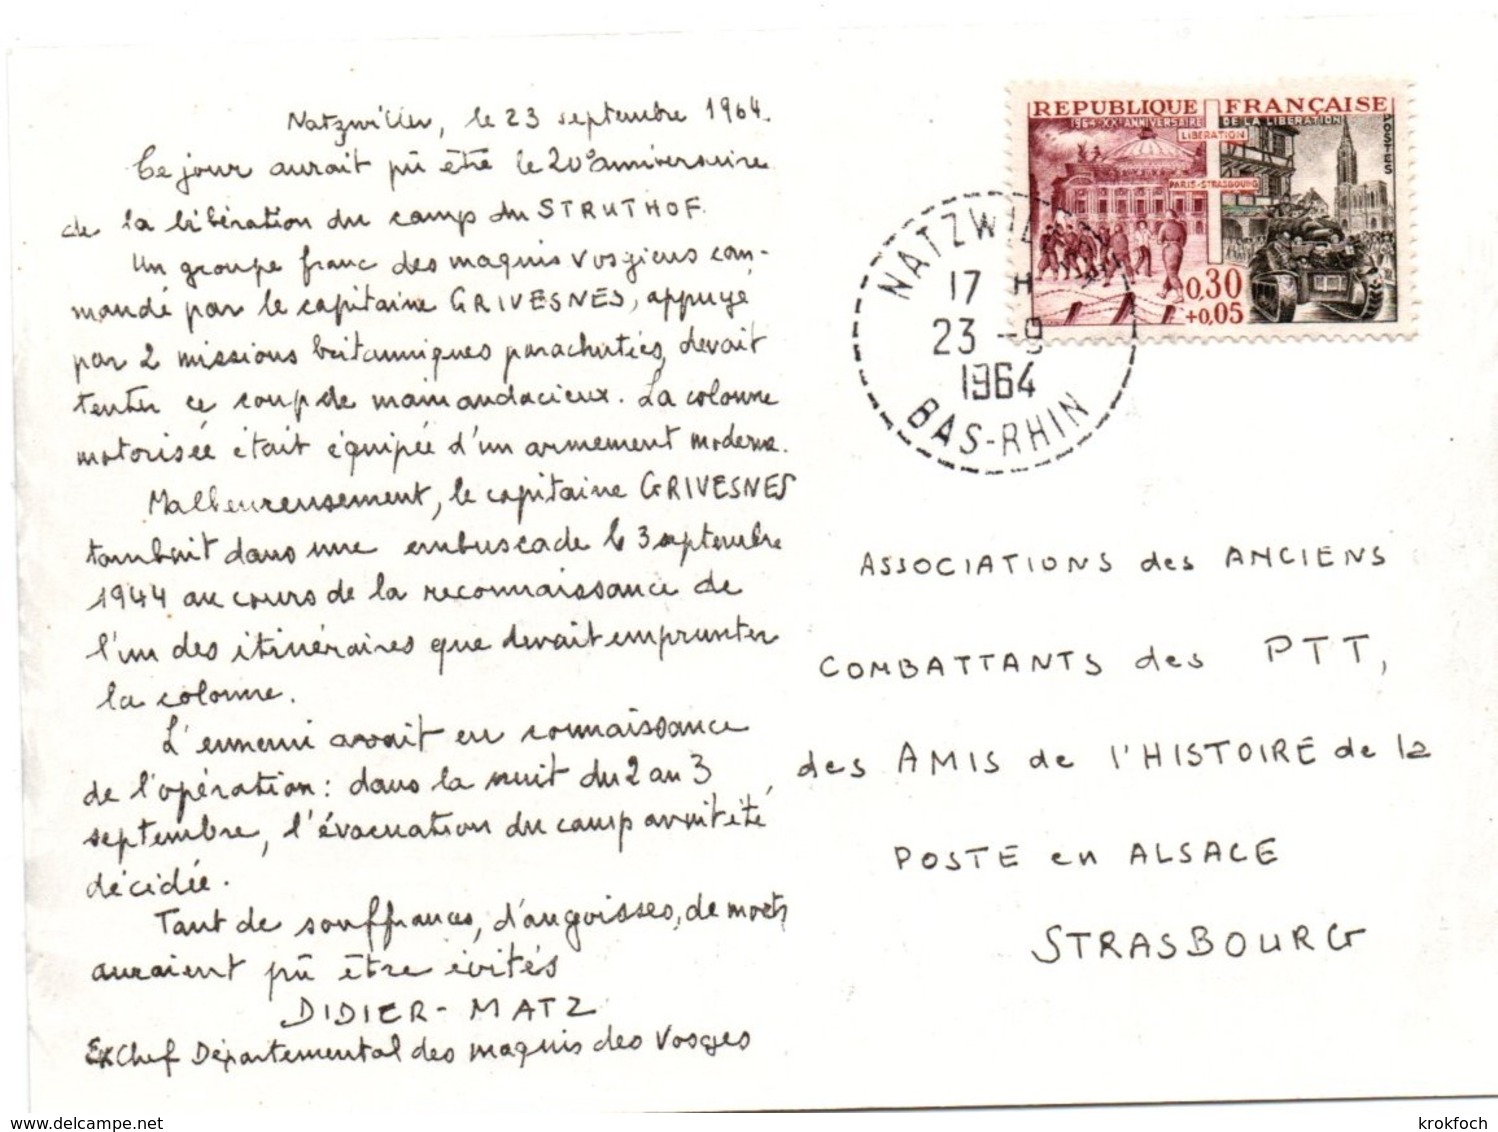 Natzwiller, le 23 septembre 1964.
Ce jour aurait pû être le 20e anniversaire
de la libération du camp du STRUTHOF.
Un groupe franc des maquis vosgiens com-
mandé par le capitaine GRIVESNES, appuyé
par 2 missions britanniques parachutées, devait
tenter ce coup de main audacieux. La colonne
motorisée était équipée d'un armement moderne.
Malheureusement, le capitaine GRIVESNES
tombait dans une embuscade le 3 septembre
1944 au cours de la reconnaissance de
l'un des itinéraires que devait emprunter
la colonne.
L'ennemi avait eu connaissance
de l'opération : dans la nuit du 2 au 3
septembre, l'évacuation du camp avait été
décidée.
Tant de souffrances, d'angoisses, de morts
auraient pû être évités
DIDIER-MATZ
Ex Chef Départemental des maquis des Vosges
REPUBLIQUE FRANÇAISE
1964-XXe ANNIVERSAIRE DE LA LIBERATION
LIBERATION
POSTES
PARIS-STRASBOURG
0,30
+0,05
NATZWILLER
17 H
23 -9
1964
BAS-RHIN
ASSOCIATIONS des ANCIENS
COMBATTANTS des PTT,
des AMIS de l'HISTOIRE de la
POSTE en ALSACE
STRASBOURG
delcampe.net
krokfoch